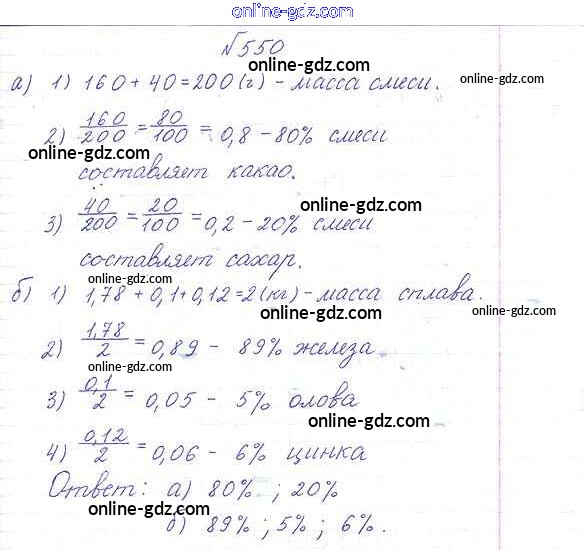 online-gdz.com
online-gdz.com
№550
online-gdz.com
а) 1) 160 + 40 = 200 (г) - масса смеси.
online-gdz.com
2) 160/200 = 80/100 = 0,8 - 80% смеси
online-gdz.com
online-gdz.com
составляет какао.
3) 40/200 = 20/100 = 0,2 - 20% смеси
online-gdz.com
составляет сахар.
online-gdz.com
б) 1) 1,78 + 0,1 + 0,12 = 2 (кг) - масса сплава.
online-gdz.com
online-gdz.com
2) 1,78/2 = 0,89 - 89% железа
online-gdz.com
3) 0,1/2 = 0,05 - 5% олова
online-gdz.com
4) 0,12/2 = 0,06 - 6% цинка
online-gdz.com
Ответ: а) 80% ; 20%
online-gdz.com
б) 89% ; 5% ; 6%.
online-gdz.com